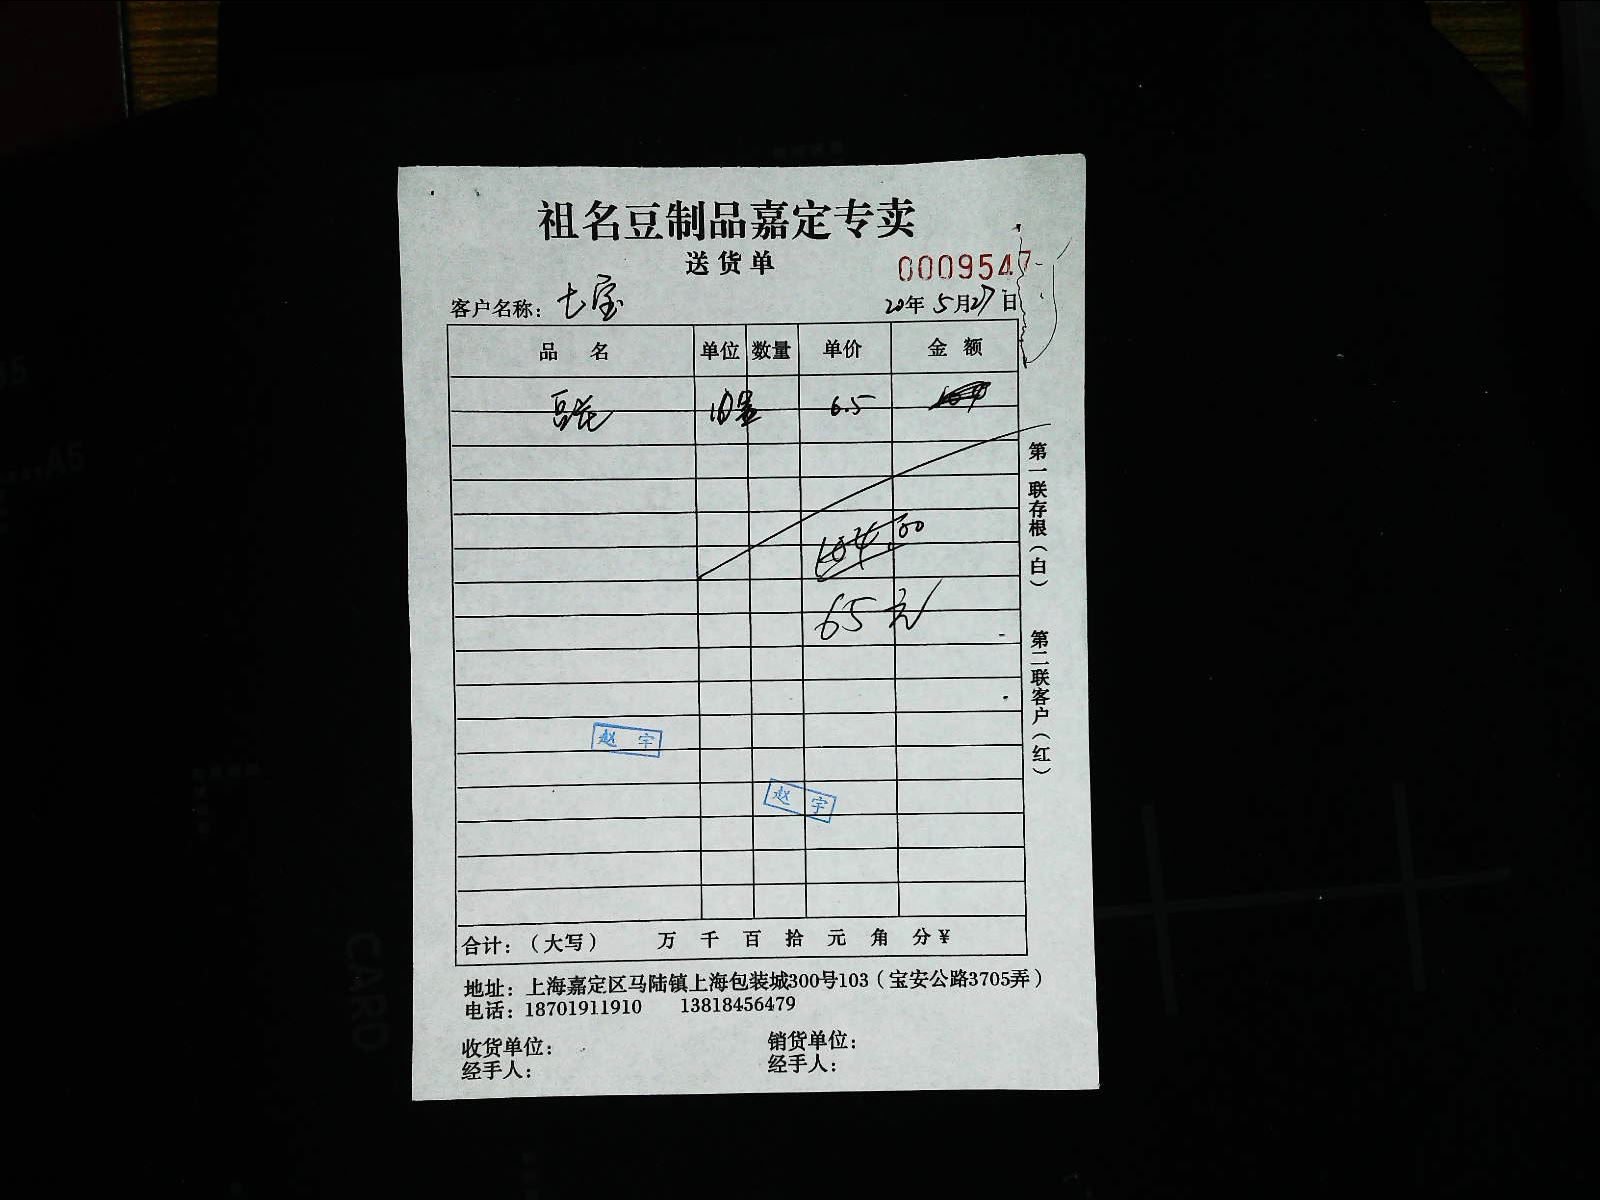 祖名豆制品嘉定专卖
送货单
0009547
客户名称：七宝
20年5月27日
品名 单位 数量 单价 金额
豆花 10盒 6.5
104.00
65元
赵宇
赵宇
第一联存根（白）
第二联客户（红）
合计：（大写） 万 千 百 拾 元 角 分 ¥
地址：上海嘉定区马陆镇上海包装城300号103（宝安公路3705弄）
电话：18701911910 13818456479
收货单位： 销货单位：
经手人： 经手人：
A5
CARD